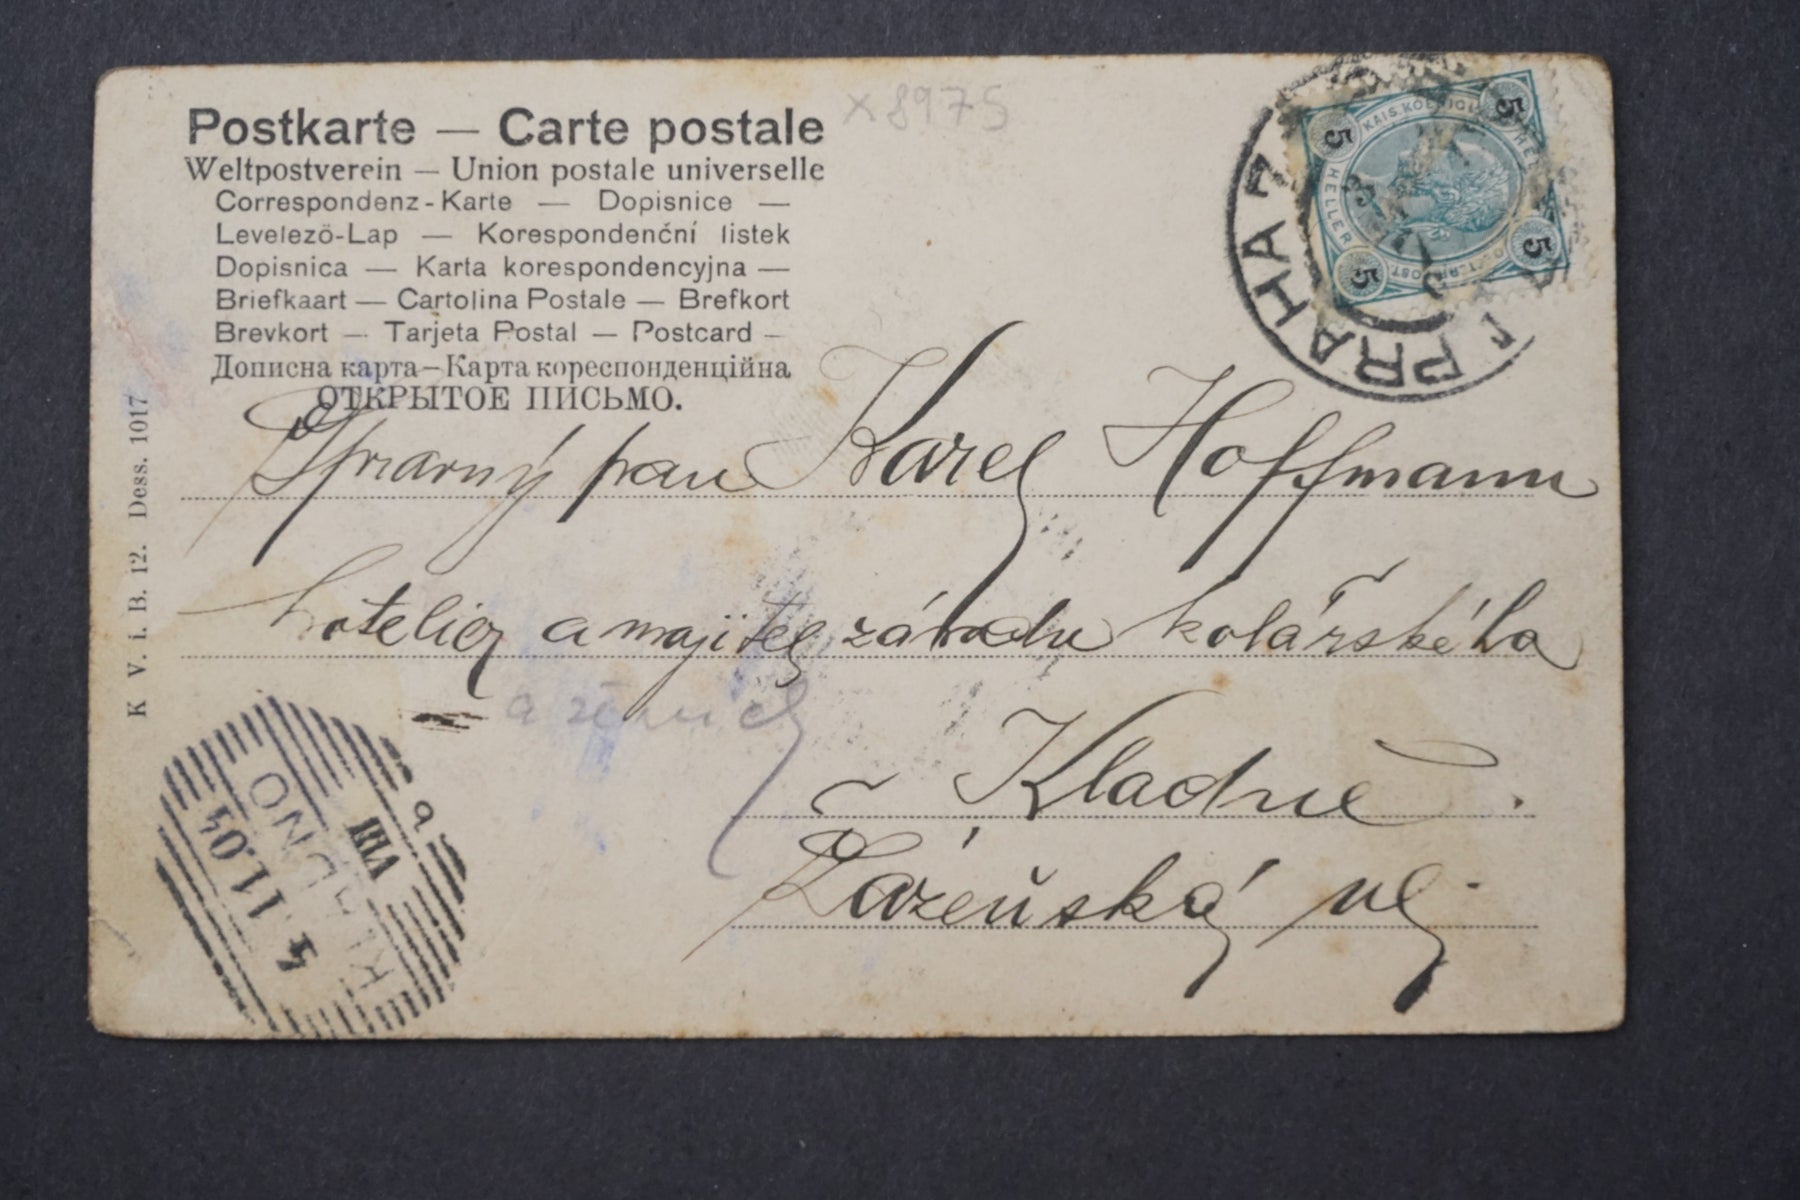 Postkarte — Carte postale
Weltpostverein — Union postale universelle
Correspondenz-Karte — Dopisnice —
Levelezö-Lap — Korespondenční listek
Dopisnica — Karta korespondencyjna —
Briefkaart — Cartolina Postale — Brefkort
Brevkort — Tarjeta Postal — Postcard —
Дописна карта — Карта кореспонденційна
ОТКРЫТОЕ ПИСЬМО.
x 8975
5 KAIS. KOENIGL. 5
HELLER
5 5
PRAHA 7
K V. i. B. 12. Dess. 1017
pan Karel Hoffmann
hotelier a majitel závodu kolářského
a
Kladně.
Lázeňská ul.
KLADNO
4 11.04
VIII
a